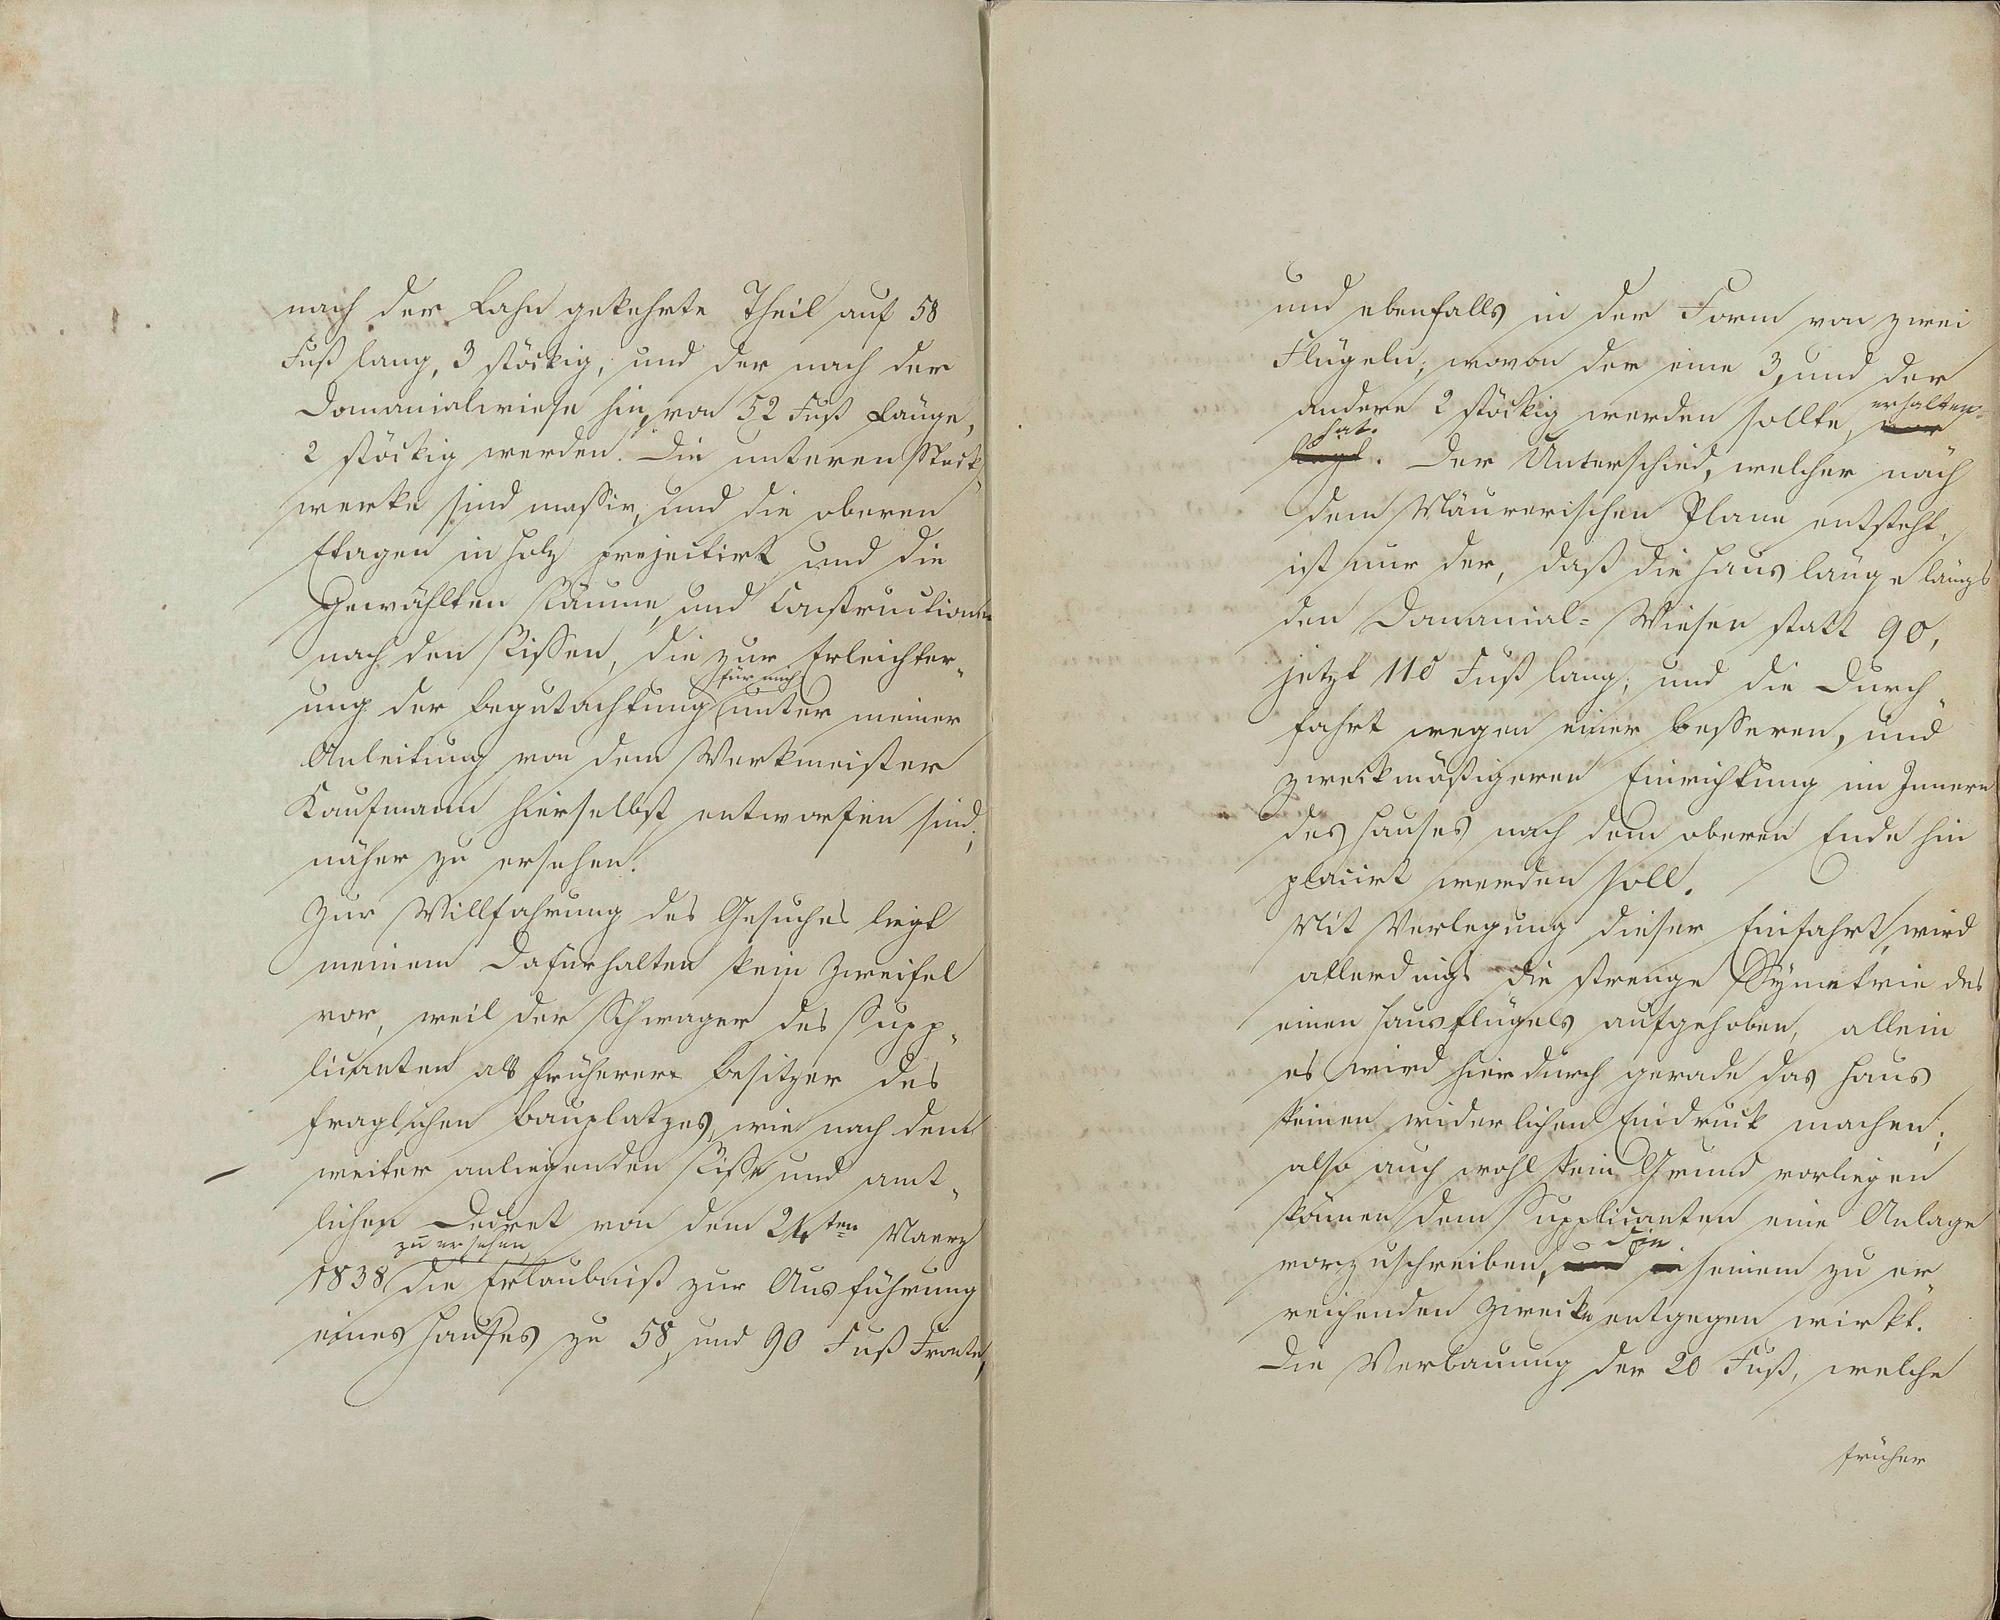 nach der Lahn gekehrte Theil auf 58
Fuß lang, 3 stöckig, und der nach der
Domanialwiese hin, von 52 Fuß Länge,
2 stöckig werden. Die unteren Stock-
werke sind massiv, und die oberen
Etagen in Holz projectirt und die
Gewählten Räume, und Constructionen
nach den Rissen, die zur Erleichter-
für mich
ung der Begutachtung unter meiner
Anleitung von dem Werkmeister
Kaufmann hierselbst entworfen sind,
näher zu ersehen.
Zur Willfahrung des Gesuches liegt
meinem Dafürhalten kein Zweifel
vor, weil der Schwager des Supp-
licanten als früherer Besitzer des
fraglichen Bauplatzes, wie nach dem
weiter anliegenden Risse und amt-
lichen Decret von dem 24ten Maerz
zu ersehen
1838 die Erlaubniß zur Ausführung
eines Hauses zu 58, und 90 Fuß Fronte,
und ebenfalls in der Form von zwei
Flügeln, wovon der eine 3, und der
andere 2 stöckig werden sollte, erhalten
hat. Der Unterschied, welcher nach
dem Mäurerischen Plane entsteht,
ist nur der, daß die Hauslänge längs
den Domanial-Wiesen statt 90,
jetzt 110 Fuß lang, und die Durch-
fahrt wegen einer besseren, und
zweckmäßigeren Einrichtung im Innern
des Hauses nach dem oberen Ende hin
placirt werden soll.
Mit Verlegung dieser Einfahrt, wird
allerdings die strenge Symetrie des
einen Hausflügels aufgehoben, allein
es wird hierdurch gerade das Haus
keinen widerlichen Eindruck machen,
also auch wohl kein Grund vorliegen
können dem Supplicanten eine Anlage
die
vorzuschreiben, seinem zu er-
reichenden Zwecke entgegen wirkt.
Die Verbauung der 20 Fuß, welche
früher